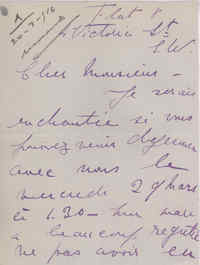 Flat 8
Victoria St
S.W.
20-3-16
Cher Monsieur -
Je serais
enchantée si vous
pouvez venir déjeuner
avec nous le
mercredi 29 Mars
à 1.30 - mon mari
a beaucoup regretté
ne pas avoir eu